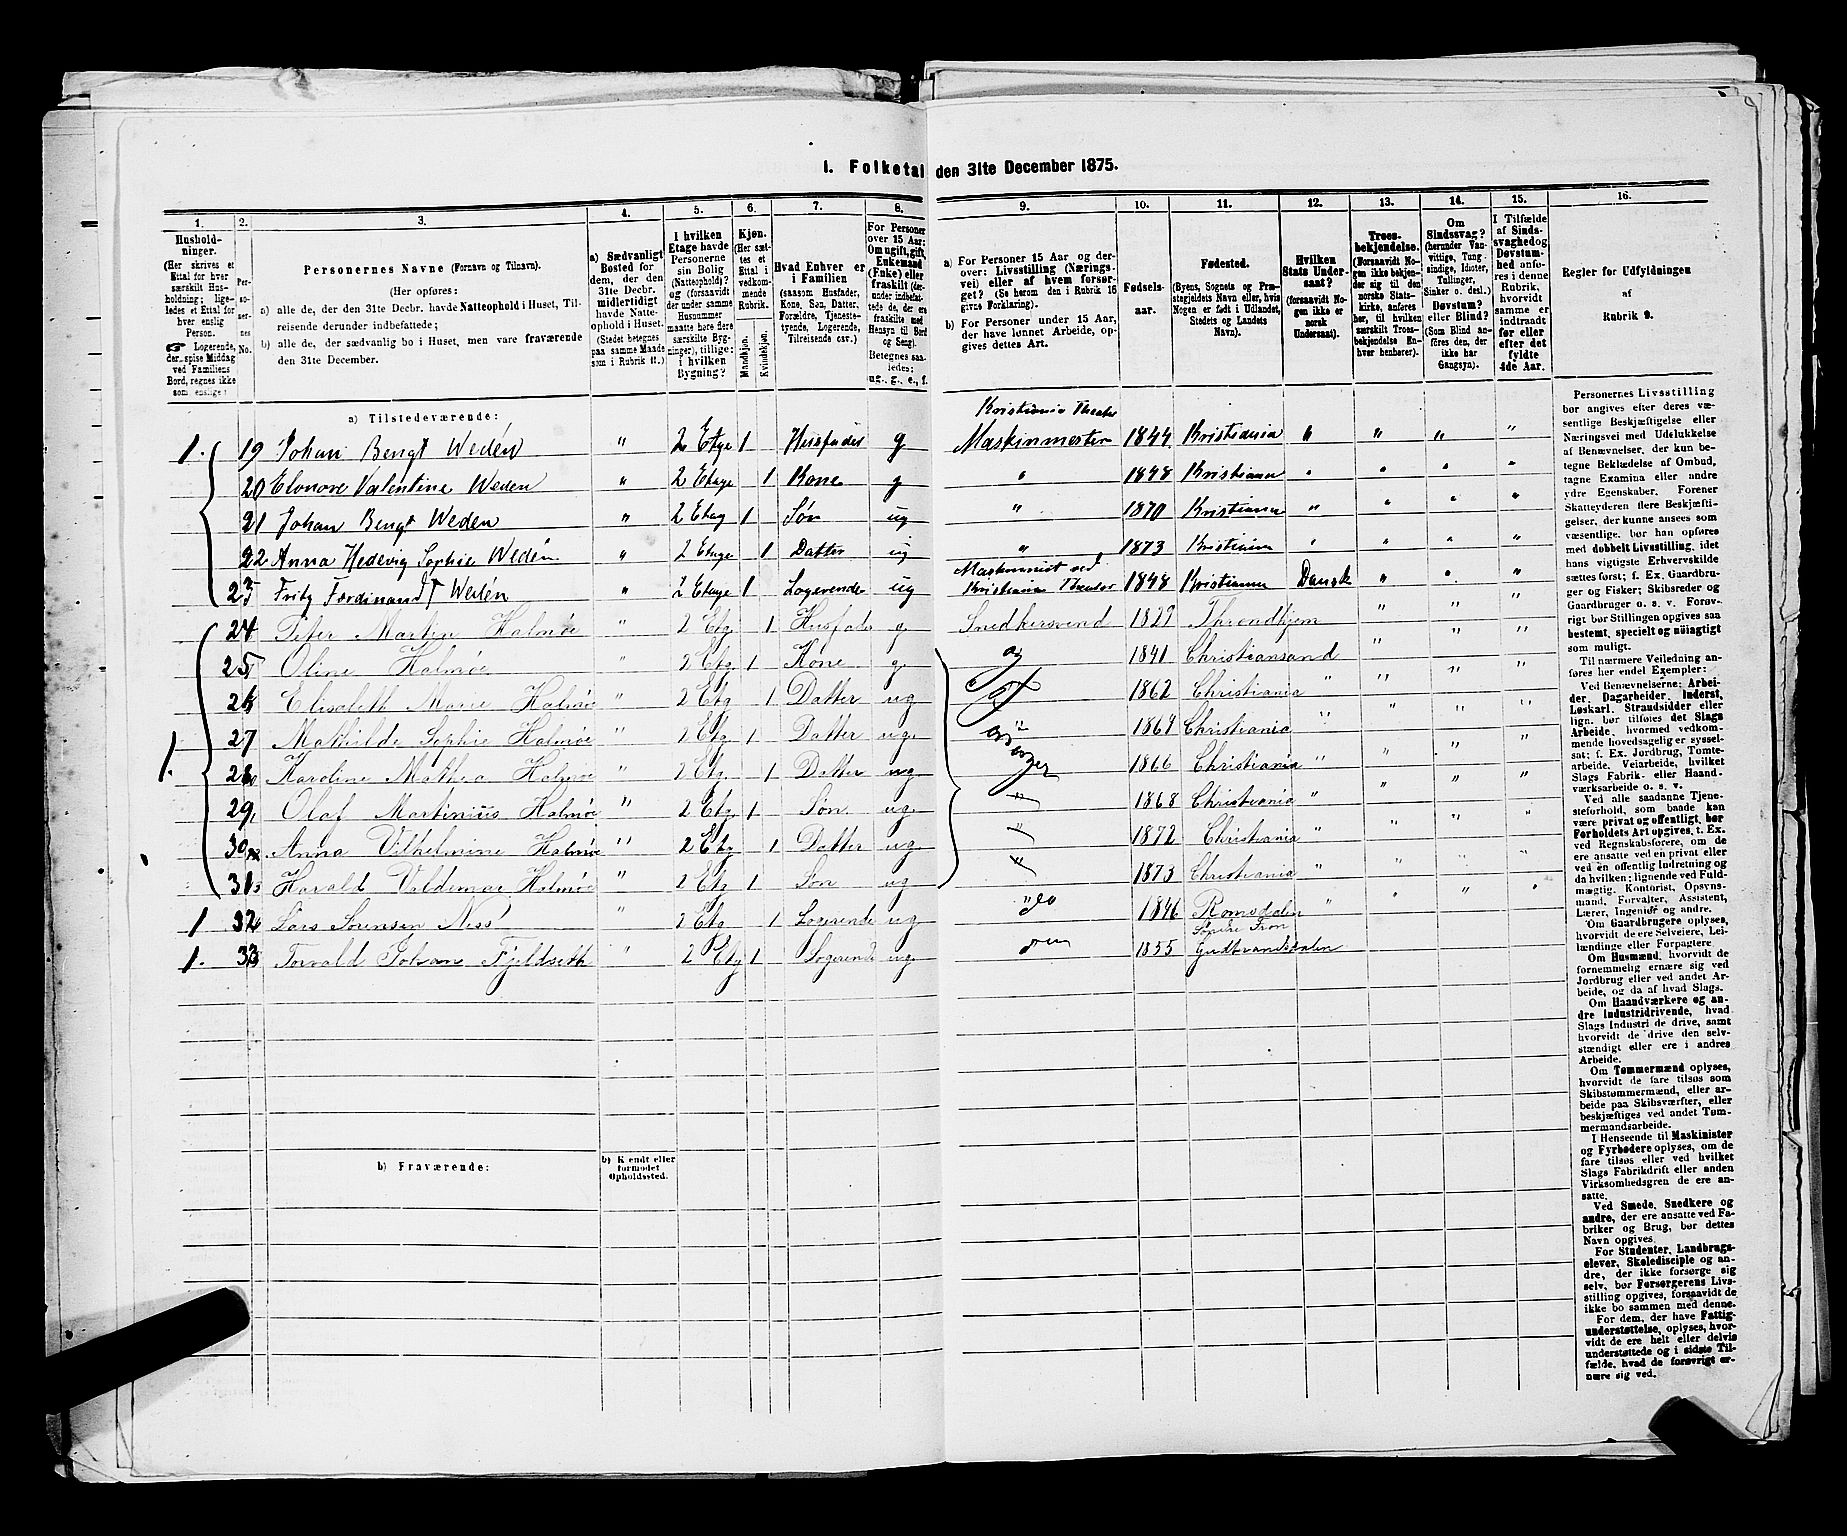 1. Folketal den 31te December 1875.
1. 2. 3. 4. 5. 6. 7. 8. 9. 10. 11. 12. 13. 14. 15. 16.
Hushold-
ninger.
(Her skrives et
Ettal for hver
særskilt Hus-
holdning; lige-
ledes et Ettal for
hver enslig
Person.
☞ Logerende,
der spise Middag
ved Familiens
Bord, regnes ikke
som enslige)
Per-
so-
ner-
nes
No.
Personernes Navne (Fornavn og Tilnavn).
(Her opføres:
a) alle de, der den 31te Decbr. havde Natteophold i Huset, Til-
reisende derunder indbefattede;
b) alle de, der sædvanlig bo i Huset, men vare fraværende
den 31te December.
a) Sædvanligt
Bosted for
dem, der den
31te Decbr.
midlertidigt
havde Natte-
ophold i Huset.
(Stedet betegnes
paa samme Maade
som i Rubrik 11.)
I hvilken
Etage havde
Personerne
sin Bolig
(Natteophold)?
og (forsaavidt
der under samme
Husnummer
maatte høre flere
særskilte Byg-
ninger), tillige:
i hvilken
Bygning?
Kjøn.
(Her sæt-
tes et
Ettal i
vedkom-
mende
Rubrik.
Mandkjøn.
Kvindekjøn.
Hvad Enhver er
i Familien
(saasom Husfader,
Kone, Søn, Datter,
Forældre, Tjeneste-
tyende, Logerende,
Tilreisende osv.)
For Personer
over 15 Aar:
Om ugift, gift,
Enkemand
(Enke) eller
fraskilt (der-
under indbefat-
tede de, der ere
fraskilte med
Hensyn til Bord
og Seng).
Betegnes saa-
ledes:
ug., g., e., f.
a) For Personer 15 Aar og der-
over: Livsstilling (Nærings-
vei) eller af hvem forsør-
get? (Se herom den i Rubrik 16
givne Forklaring.)
b) For Personer under 15 Aar,
der have lønnet Arbeide, op-
gives dettes Art.
Fødsels-
aar.
Fødested.
(Byens, Sognets og Præ-
stegjeldets Navn eller, hvis
Nogen er født i Udlandet,
Stedets og Landets
Navn).
Hvilken
Stats Under-
saat?
(forsaavidt No-
gen ikke er
norsk
Undersaat).
Troes-
bekjendelse.
(Forsaavidt No-
gen ikke bekjen-
der sig til den
norske Stats-
kirke, anføres
her, til hvilken
særskilt Troes-
bekjendelse En-
hver henhører).
Om
Sindssvag?
(herunder Van-
vittige, Tung-
sindige, Idioter,
Tullinger,
Sinker o. desl.)
Døvstum?
eller Blind?
(Som Blind an-
føres den, der
ikke har
Gangsyn).
I Tilfælde
af Sinds-
svaghed og
Døvstum-
hed anfø-
res i denne
Rubrik,
hvorvidt
samme er
indtraadt
før eller
efter det
fyldte
4de Aar.
Regler for Udfyldningen
af
Rubrik 9.
a) Tilstedeværende:
Kristiania Theater
1. 19 Johan Bengt Wedén " 2 Etge 1 Husfader g Maskinmester 1844 Kristiania " " " "
20 Elonore Valentine Weden " 2 Etage 1 Kone g " 1848 Kristiania " " " "
21 Johan Bengt Weden " 2 Etag 1 Søn ug " 1870 Kristiania " " " "
22 Anna Hedevig Sophie Wedén " 2 Etage 1 Datter ug " 1873 Kristiania " " " "
Maskinmist ved
23 Fritz Ferdinandt Wedén " 2 Etage 1 Logerende ug Kristiania Theater 1848 Kristiania Dansk " " "
24 Peter Martin Halmøe " 2 Etg 1 Husfader g Snedkersvend 1829 Throndhjem " " "
25 Oline Halmøe " 2 Etg 1 Kone g. 1841 Christiansand " " "
26 Elisabeth Marie Halmøe " 2 Etg 1 Datter ug 1862 Christiania " " " "
27 Mathilde Sophie Halmøe " 2 Etg 1 Datter ug. " 1864 Christiania " " " "
1. 28 Karoline Mathea Halmøe " 2 Etg. 1 Datter ug 1866 Christiania " " " "
29 Olaf Martinius Halmøe " 2 Etg 1 Søn ug. " 1868 Christiania " " " "
30 Anna Vilhelmine Halmøe " 2 Etg 1 Datter ug " 1872 Christiania " " " "
31 Harald Valdemar Halmøe " 2 Etg 1 Søn ug " 1873 Christiania " " " "
1 32 Lars Sørensen Ness " 2 Etg 1 Logerende ug do 1846 Romsdalen " " " "
Søndre Fron
1. 33 Torvald Johan Fjeldseth " 2 Etg 1 Logerende ug. 1855 Gudbrandsdalen
b) Fraværende:
b) Kendt eller
formodet
Opholdssted.
Personernes Livsstilling
bør angives efter deres væ-
sentlige Beskjæftigelse eller
Næringsvei med Udelukkelse
af Benævnelser, der kun be-
tegne Beklædelse af Ombud,
tagne Examina eller andre
ydre Egenskaber. Forener
Skatteyderen flere Beskjæfti-
gelser, der kunne ansees som
væsentlige, bør han opføres
med dobbelt Livsstilling, idet
hans vigtigste Erhvervskilde
sættes først; f. Ex. Gaardbru-
ger og Fisker; Skibsreder og
Gaardbruger o. s. v. Forøv-
rigt bør Stillingen opgives saa
bestemt, specielt og nøiagtigt
som muligt.
Til nærmere Veiledning an-
føres her endel Exempler:
Ved Benævnelserne: Arbei-
der, Dagarbeider, Inderst,
Løskarl, Strandsidder eller
lign. bør tilføies det Slags
Arbeide, hvormed vedkom-
mende hovedsagelig er syssel-
sat; f. Ex. Jordbrug, Tomte-
arbeide, Veiarbeide, hvilket
Slags Fabrik- eller Haand-
værksarbeide o. s. v.
Ved alle saadanne Tjene-
steforhold, som baade kan
være privat og offentligt, bør
Forholdets Art opgives, t. Ex.
ved Regnskabsførere, om de
ere ansatte ved en privat eller
ved en offentlig Indretning og
da hvilken; lignende ved Fuld-
mægtig, Kontorist, Opsyns-
mand, Forvalter, Assistent,
Lærer, Ingeniør og andre.
Om Gaardbrugere oplyses,
hvorvidt de ere Selveiere, Lei-
lændinge eller Forpagtere
Om Husmænd, hvorvidt de
fornemmelig ernære sig ved
Jordbrug eller ved andet Ar-
beide, og da af hvad Slags.
Om Haandværkere og an-
dre Industridrivende, hvad
Slags Industri de drive, samt
hvorvidt de drive den selv-
stændigt eller ere i andres
Arbeide.
Om Tømmermænd oplyses,
hvorvidt de fare tilsøs som
Skibstømmermænd, eller ar-
beide paa Skibsværfter, eller
beskjæftiges ved andet Tøm-
mermandsarbeide.
I Henseende til Maskinister
og Fyrbødere oplyses, om de
fare tilsøs eller ved hvilket
Slags Fabrikdrift eller anden
Virksomhedsgren de ere an-
satte.
Ved Smede, Snedkere og
andre, der ere ansatte ved Fa-
briker og Brug, bør dettes
Navn opgives.
For Studenter, Landbrugs-
elever, Skoledisciple og an-
dre, der ikke forsørge sig
selv, bør Forsørgerens Livs-
stilling opgives, forsaavidt de
ikke bo sammen med denne.
For dem, der have Fattig-
understøttelse, oplyses, hvor-
vidt de ere helt eller delvis
understøttede og i sidste Til-
fælde, hvad de forøvrigt er-
nære sig ved.